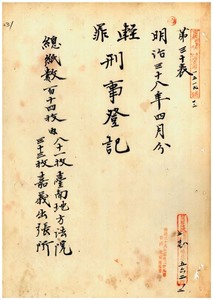 第三十表
明治三十八年四月分
輕罪
刑事登記
總紙數百十四枚內
八十一枚臺南地方法院
三十三枚嘉義出張所